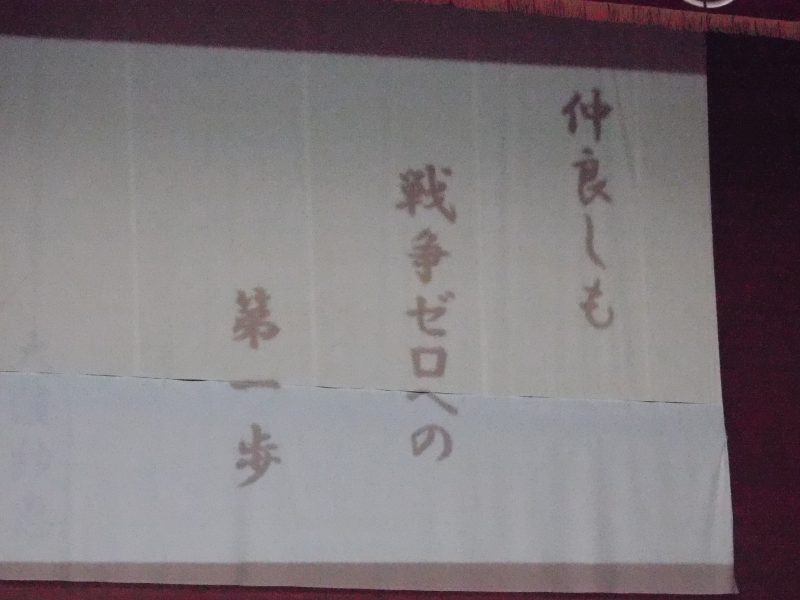 仲良しも
戦争ゼロへの
第一歩